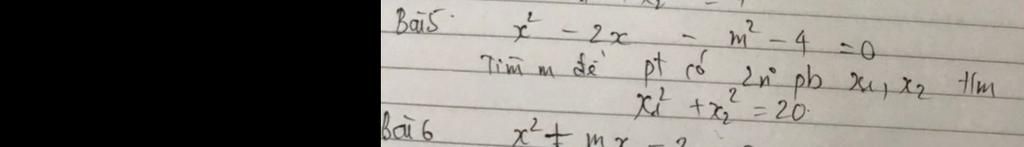 Bài 5. x² - 2x - m² - 4 = 0
Tìm m để pt có 2n° pb x₁, x₂ t/m
x₁² + x₂² = 20.
Bài 6 x² + mx - 2